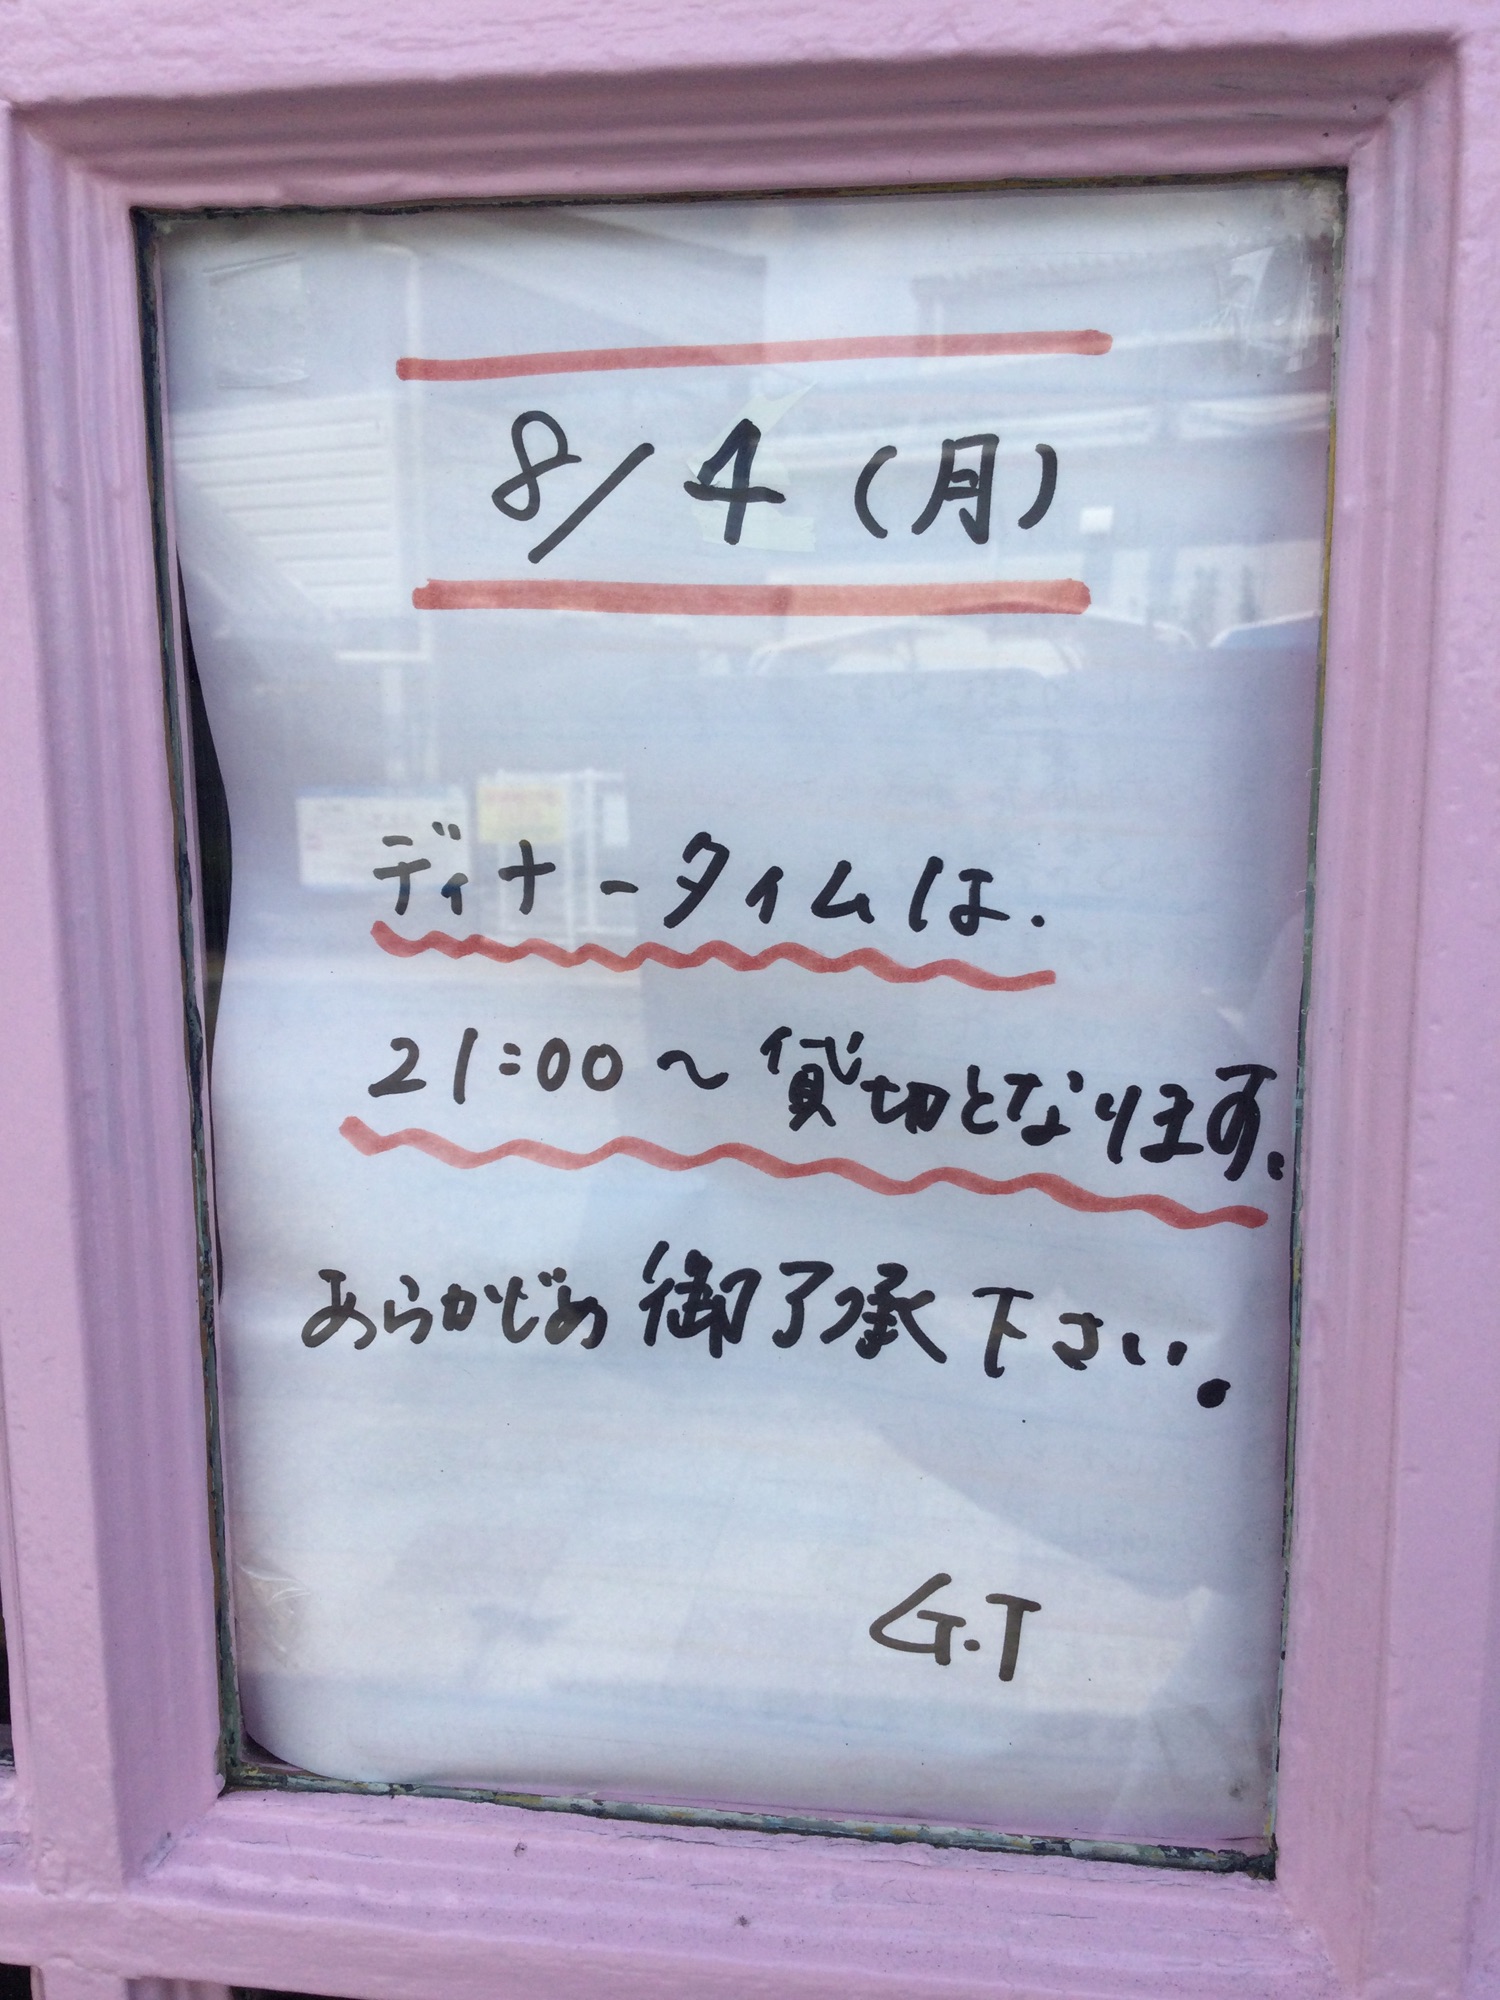 8/4（月）
ディナータイムは.
21:00～貸切となります.
あらかじめ御了承下さい.
G.T